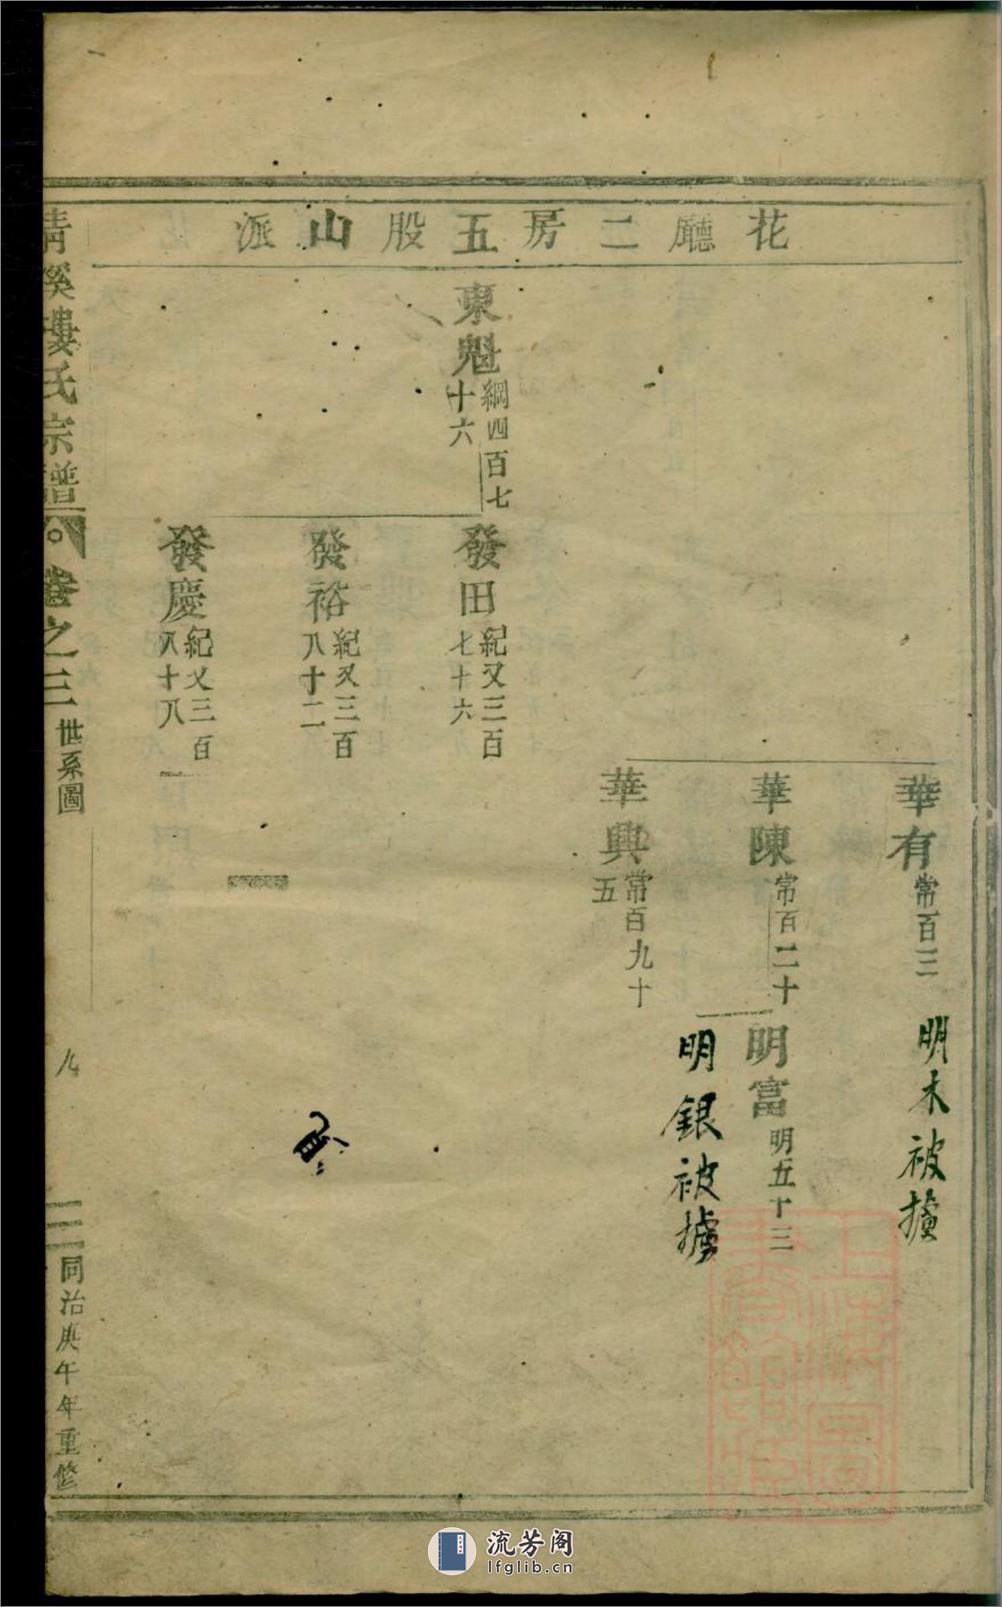 花廳二房五股山派
華有 常百三
明木被擄
華陳 常百二十
明富 明五十三
明銀被擄
華興 常百九十五
東魁 綱四百七十六
發田 紀又三百七十六
發裕 紀又三百八十二
發慶 紀又三百八十八
清溪婁氏宗譜
卷之三 世系圖
同治庚午年重修
上海圖書館藏
流芳阁
lfglib.cn